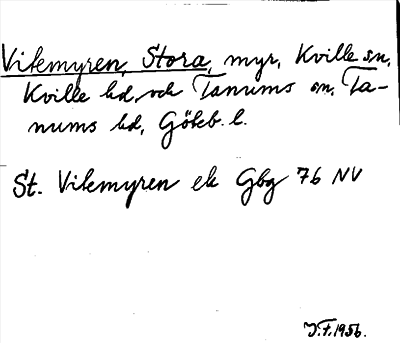 Vitemyren, Stora, myr, Kville sn,
Kville hd, och Tanums sn, Ta-
nums hd, Göteb. l.
St. Vitemyren ek Gbg 76 NV
J.F. 1956.